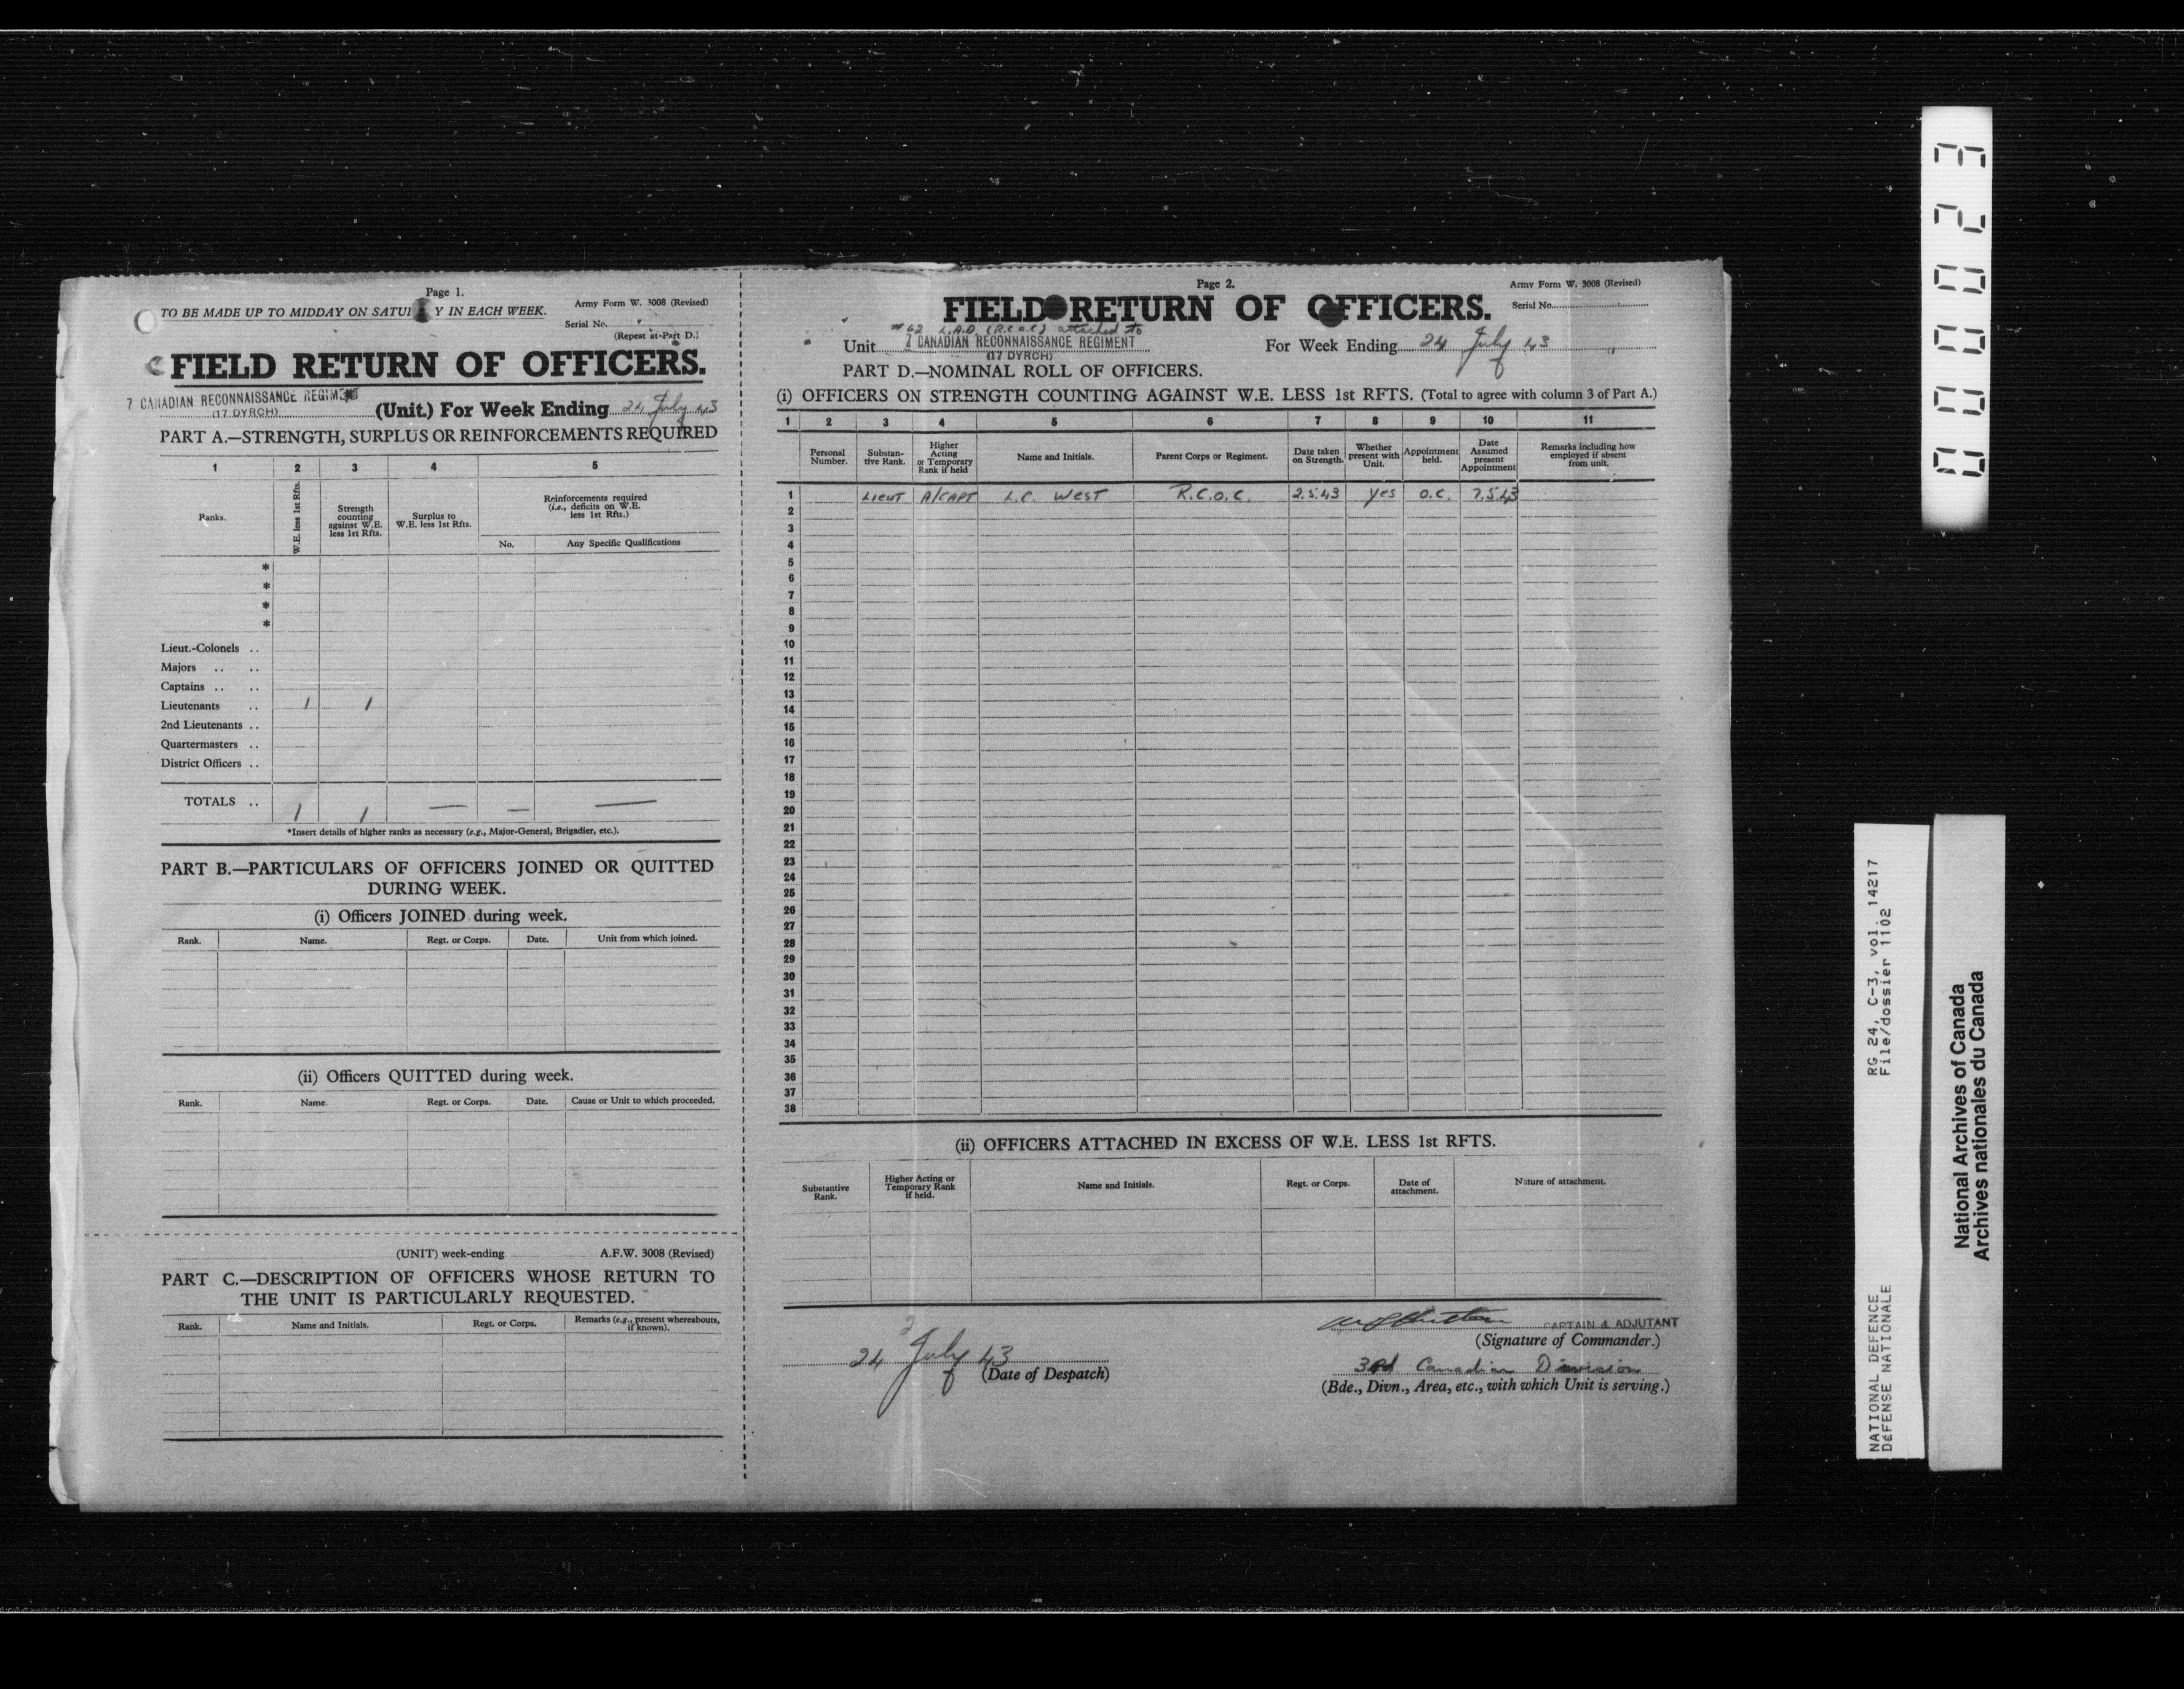 Page 1.
TO BE MADE UP TO MIDDAY ON SATU Y IN EACH WEEK.
Army Form W. 3008 (Revised)
Serial No.
(Repeat at Part D.)
FIELD RETURN OF OFFICERS.
7 CANADIAN RECONNAISSANCE REGIMENT
(17 DYRCH)
(Unit.) For Week Ending 24 July 43
PART A.—STRENGTH, SURPLUS OR REINFORCEMENTS REQUIRED
1 2 3 4 5
Ranks.
W.E. less 1st Rfts.
Strength counting against W.E. less 1st Rfts.
Surplus to W.E. less 1st Rfts.
Reinforcements required (i.e., deficits on W.E. less 1st Rfts.)
No. Any Specific Qualifications
*
*
*
*
Lieut.-Colonels ..
Majors .. ..
Captains .. ..
Lieutenants .. 1 1
2nd Lieutenants ..
Quartermasters ..
District Officers ..
TOTALS .. 1 1 — — —
*Insert details of higher ranks as necessary (e.g., Major-General, Brigadier, etc.).
PART B.—PARTICULARS OF OFFICERS JOINED OR QUITTED
DURING WEEK.
(i) Officers JOINED during week.
Rank. Name. Regt. or Corps. Date. Unit from which joined.
(ii) Officers QUITTED during week.
Rank. Name. Regt. or Corps. Date. Cause or Unit to which proceeded.
(UNIT) week-ending A.F.W. 3008 (Revised)
PART C.—DESCRIPTION OF OFFICERS WHOSE RETURN TO
THE UNIT IS PARTICULARLY REQUESTED.
Rank. Name and Initials. Regt. or Corps. Remarks (e.g., present whereabouts, if known).
Page 2.
Army Form W. 3008 (Revised)
FIELD RETURN OF OFFICERS.
Serial No.
62 L.A.D. (R.C.O.C) attached to
Unit 7 CANADIAN RECONNAISSANCE REGIMENT
(17 DYRCH)
For Week Ending 24 July 43
PART D.—NOMINAL ROLL OF OFFICERS.
(i) OFFICERS ON STRENGTH COUNTING AGAINST W.E. LESS 1st RFTS. (Total to agree with column 3 of Part A.)
1 2 3 4 5 6 7 8 9 10 11
Personal Number.
Substantive Rank.
Higher Acting or Temporary Rank if held
Name and Initials.
Parent Corps or Regiment.
Date taken on Strength.
Whether present with Unit.
Appointment held.
Date Assumed present Appointment
Remarks including how employed if absent from unit.
1 LIEUT A/CAPT L.C. WEST R.C.O.C. 2.5.43 yes O.C. 7.5.43
2
3
4
5
6
7
8
9
10
11
12
13
14
15
16
17
18
19
20
21
22
23
24
25
26
27
28
29
30
31
32
33
34
35
36
37
38
(ii) OFFICERS ATTACHED IN EXCESS OF W.E. LESS 1st RFTS.
Substantive Rank.
Higher Acting or Temporary Rank if held.
Name and Initials.
Regt. or Corps.
Date of attachment.
Nature of attachment.
24 July 43
(Date of Despatch)
CAPTAIN & ADJUTANT
(Signature of Commander.)
3rd Canadian Division
(Bde., Divn., Area, etc., with which Unit is serving.)
000023
NATIONAL DEFENCE RG 24, C-3, vol. 14217
DÉFENSE NATIONALE File/dossier 1102
National Archives of Canada
Archives nationales du Canada